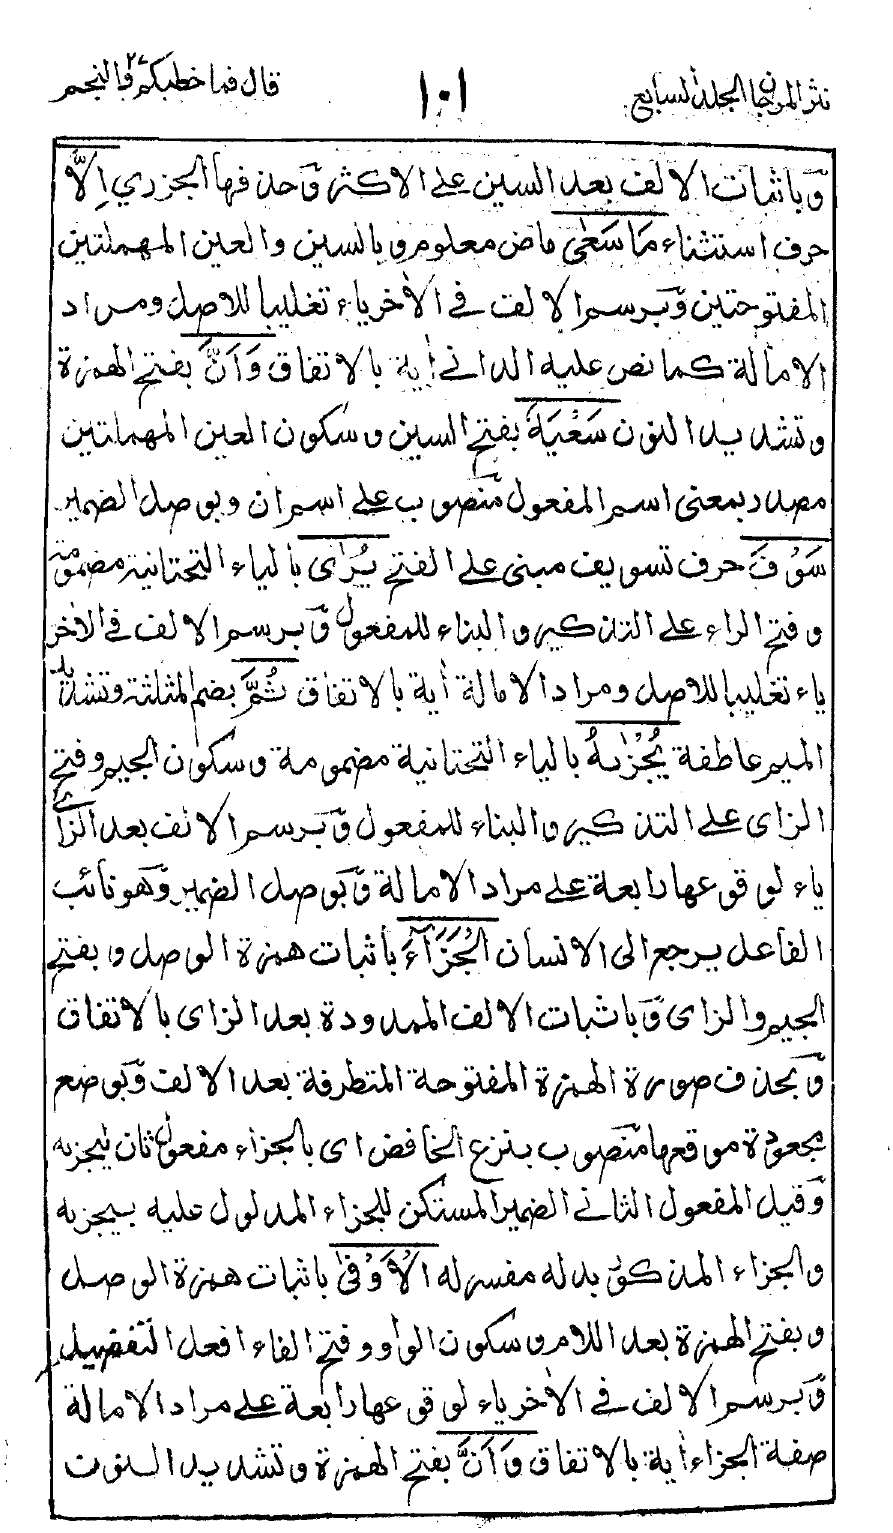 نثر المرجان الجلد السابع
١٠١
قال فما خطبكم ٢٧ والنجم
وباثبات الالف بعد السين على الاكثر وحذفها الجزري اِلَّا
حرف استثناء مَا سَعٰى ماض معلوم وبالسين والعين المهملتين
المفتوحتين وبرسم الالف في الاٰخر ياء تغليبا للاصل ومراد
الامالة كما نص عليه الداني اٰية بالاتفاق وَاَنَّ بفتح الهمزة
وتشديد النون سَعْيَهٗ بفتح السين وسكون العين المهملتين
مصدر بمعنى اسم المفعول منصوب على اسم ان وبوصل الضمير
سَوْفَ حرف تسويف مبنى على الفتح يُرٰى بالياء التحتانية مضمومة
وفتح الراء على التذكير والبناء للمفعول وبرسم الالف في الاٰخر
ياء تغليبا للاصل ومراد الامالة اٰية بالاتفاق ثُمَّ بضم المثلثة وتشديد
الميم عاطفة يُجْزٰىهُ بالياء التحتانية مضمومة وسكون الجيم وفتح
الزاى على التذكير والبناء للمفعول وبرسم الالف بعد الزاي
ياء لوقوعها رابعة على مراد الامالة وبوصل الضمير وهو نائب
الفاعل يرجع الى الانسان الْجَزَآءَ باثبات همزة الوصل وبفتح
الجيم والزاى وباثبات الالف الممدودة بعد الزاى بالاتفاق
وبحذف صورة الهمزة المفتوحة المتطرفة بعد الالف وبوضع
مجعودة موقعها منصوب بنزع الخافض اى بالجزاء مفعول ثان ليجزىه
وقيل المفعول الثاني الضمير المستكن للجزاء المدلول عليه بيجزىه
والجزاء المذكور بدله مفسر له الْاَوْفٰى باثبات همزة الوصل
وبفتح الهمزة بعد اللام وسكون الواو وفتح الفاء افعل التفضيل
وبرسم الالف في الاٰخر ياء لوقوعها رابعة على مراد الامالة
صفة الجزاء اٰية بالاتفاق وَاَنَّ بفتح الهمزة وتشديد النون